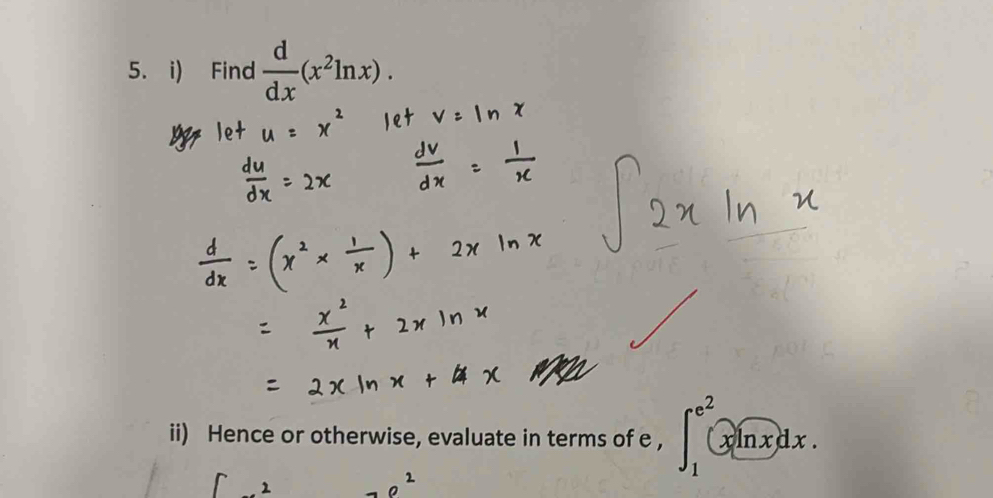 5. i) Find d/dx (x²lnx) .
let u = x² let v = ln x
du/dx = 2x dv/dx = 1/x
∫ 2x ln x
d/dx = (x² × 1/x) + 2x ln x
= x²/x + 2x ln x
= 2x ln x + x
ii) Hence or otherwise, evaluate in terms of e , ∫₁^e² x lnx dx .